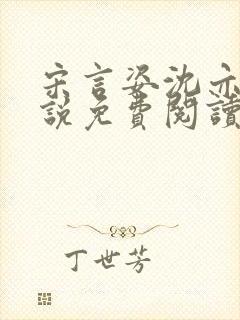 宋言姿沈亦
說免費閱讀
丁世芳